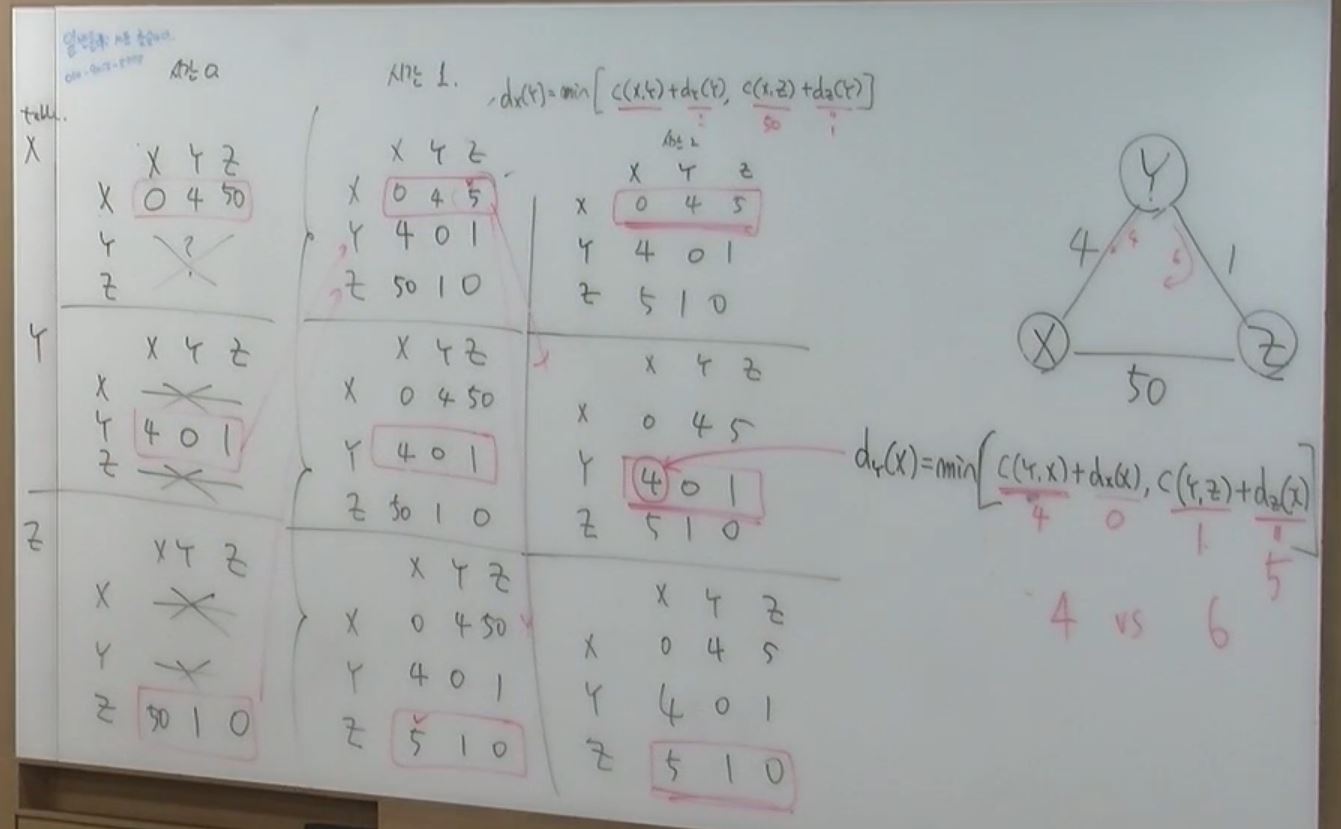 시간 0
시간 1.
dx(Y)=min[ C(X,Y)+dY(Y), C(X,Z)+dZ(Y)]
50
1
table.
X
X Y Z
X 0 4 50
Y ?
Z
X Y Z
X 0 4 5
Y 4 0 1
Z 50 1 0
시간 2
X Y Z
X 0 4 5
Y 4 0 1
Z 5 1 0
Y
X Y Z
X
Y 4 0 1
Z
X Y Z
X 0 4 50
Y 4 0 1
Z 50 1 0
X Y Z
X 0 4 5
Y 4 0 1
Z 5 1 0
Z
X Y Z
X
Y
Z 50 1 0
X Y Z
X 0 4 50
Y 4 0 1
Z 5 1 0
X Y Z
X 0 4 5
Y 4 0 1
Z 5 1 0
Y
4 1
X Z
50
dY(X)=min[C(Y,X)+dX(X), C(Y,Z)+dZ(X)]
4 0 1 5
4 vs 6